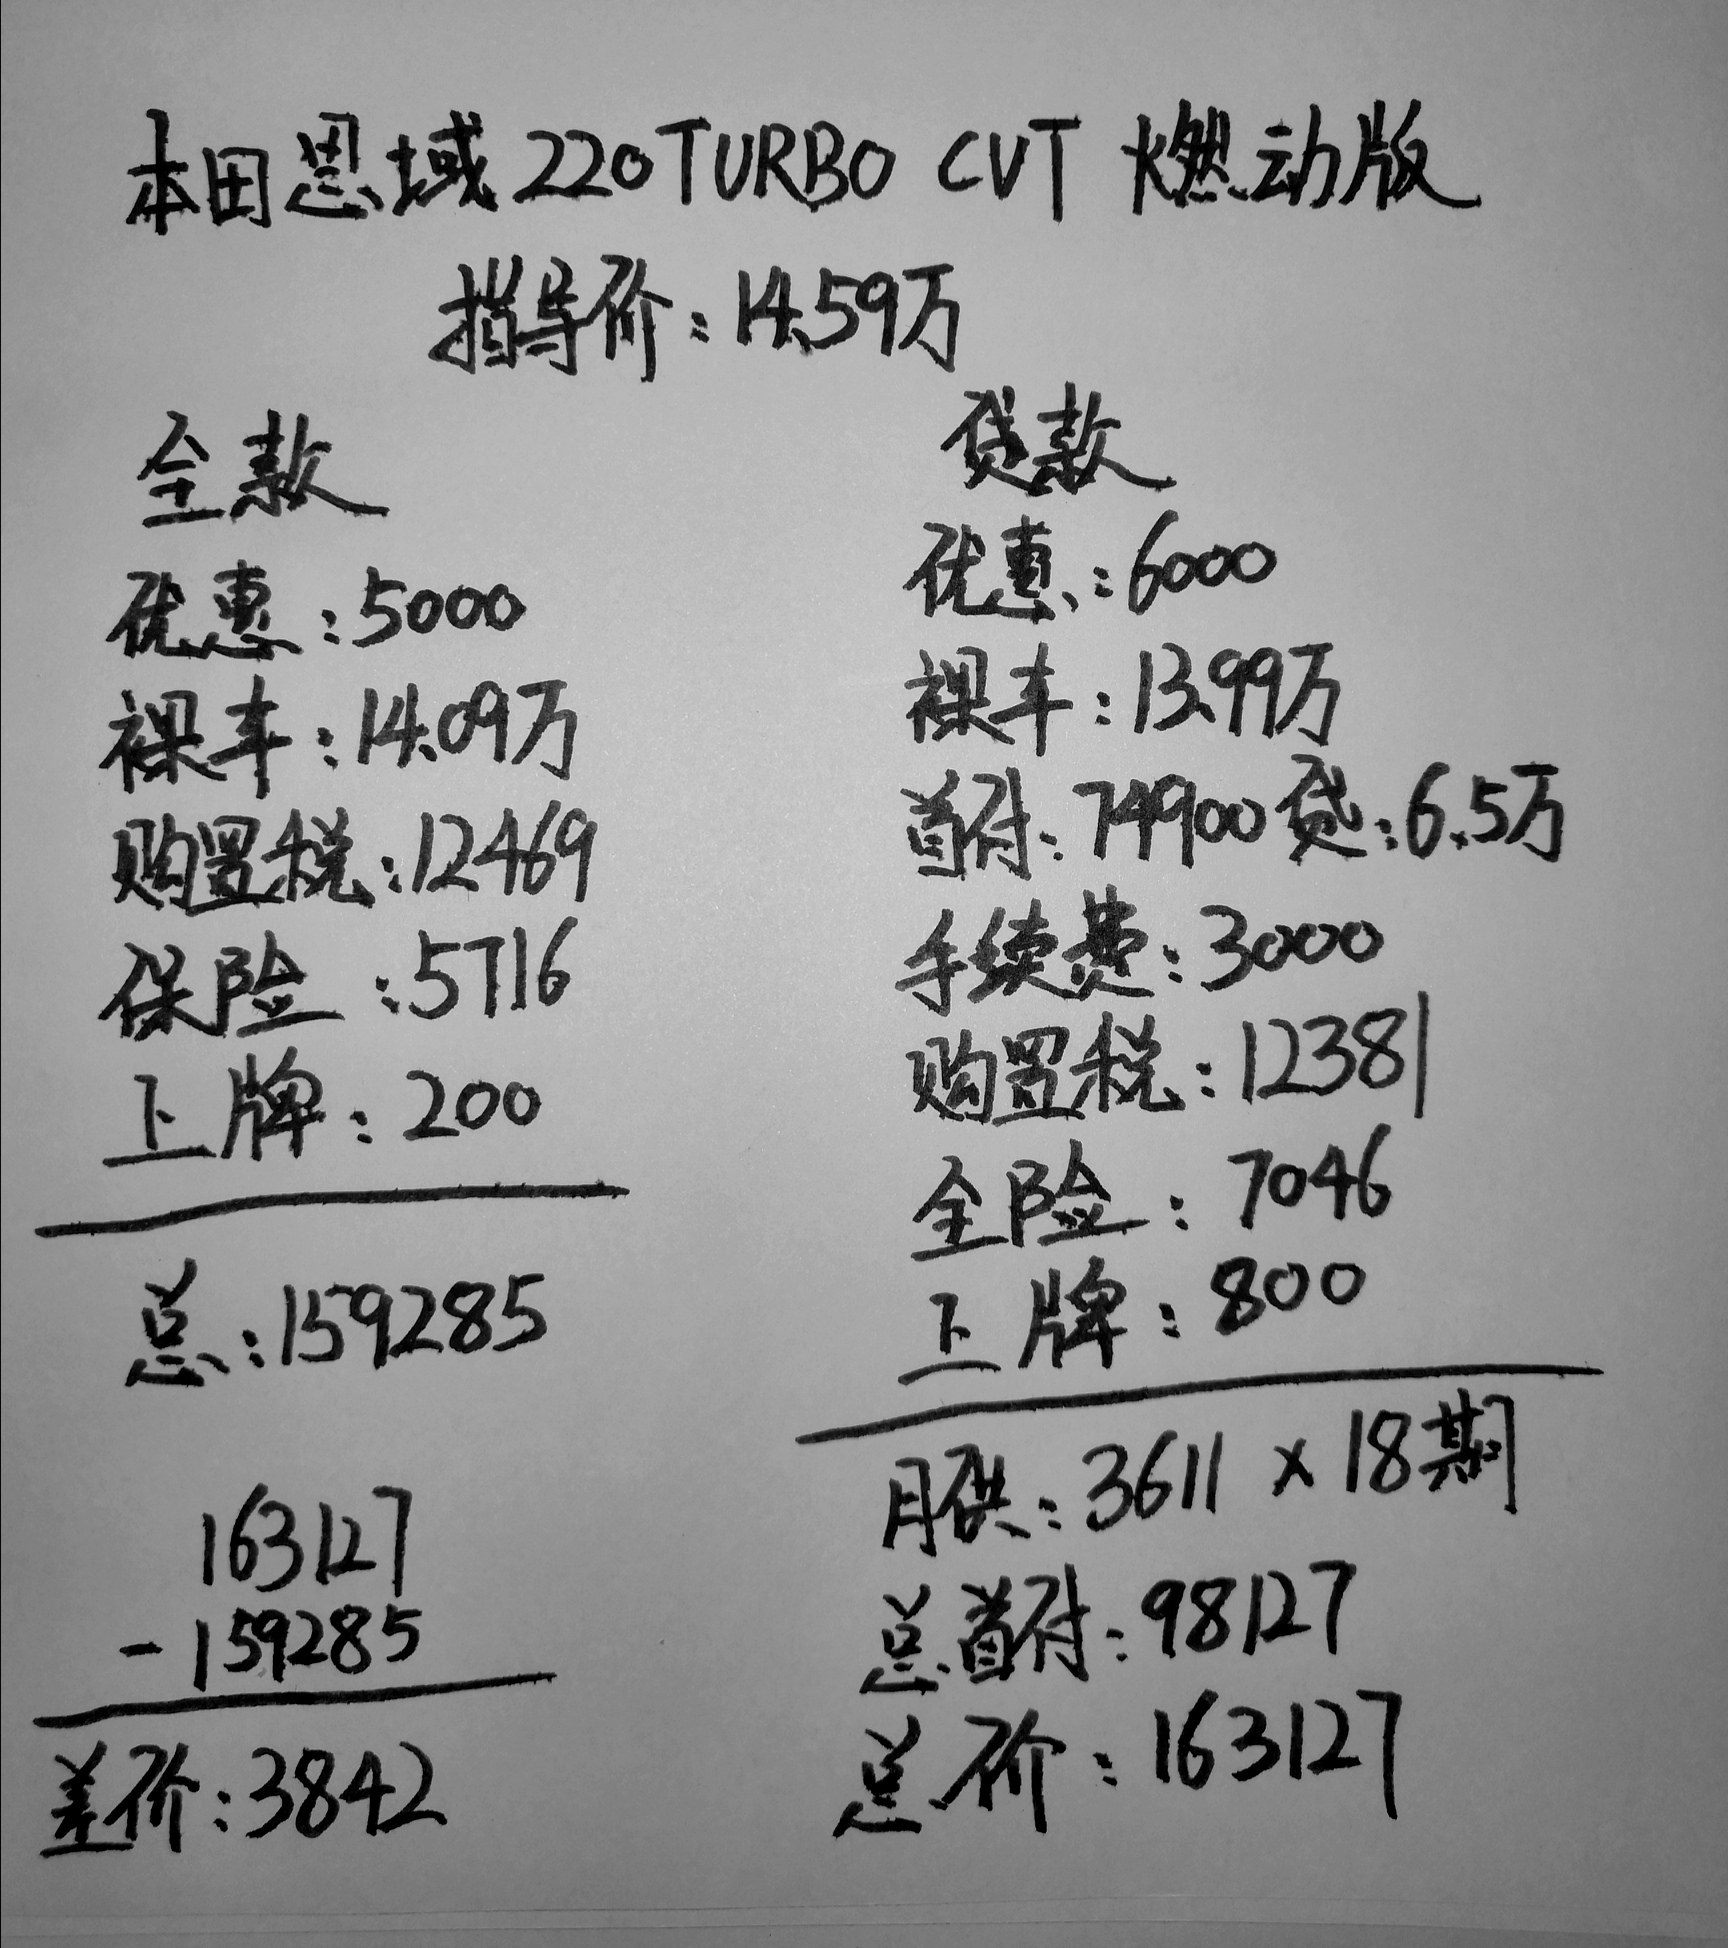 本田思域 220TURBO CVT 燃动版
指导价:14.59万
全款
优惠:5000
裸车:14.09万
购置税:12469
保险:5716
上牌:200
总:159285
163127
-159285
差价:3842
贷款
优惠:6000
裸车:13.99万
首付:74900 贷:6.5万
手续费:3000
购置税:12381
全险:7046
上牌:800
月供:3611 × 18期
总首付:98127
总价:163127